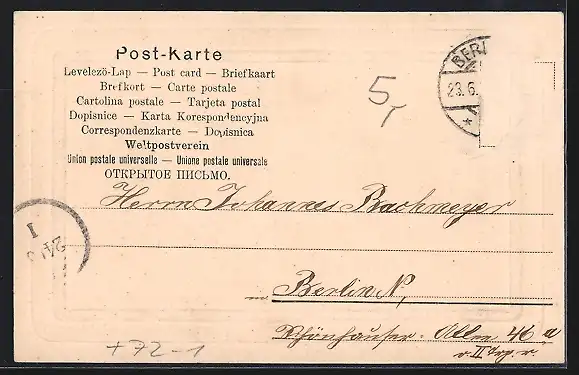 Post-Karte
Levelezö-Lap — Post card — Briefkaart
Brefkort — Carte postale
Cartolina postale — Tarjeta postal
Dopisnice — Karta Korespondencyjna
Correspondenzkarte — Dopisnica
Weltpostverein
Union postale universelle — Unione postale universale
ОТКРЫТОЕ ПИСЬМО.
5,
BERL
23.6.
Herrn Johannes Bachmeyer
I
in Berlin N,
Schönhauser Allee 46 a
v. II Trp. r.
+72-1